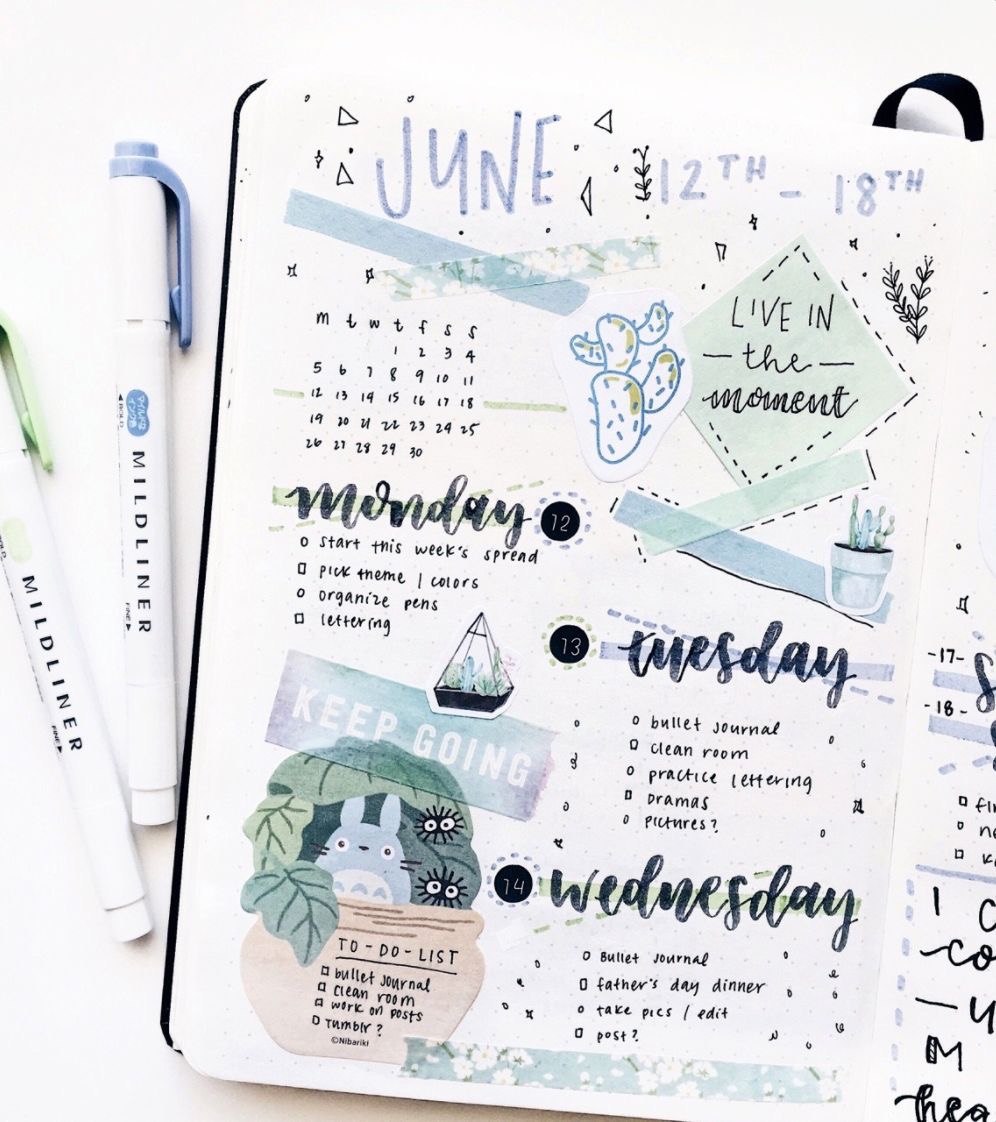 JUNE 12TH - 18TH
LIVE IN
- the -
moment
m t w t f s s
1 2 3 4
5 6 7 8 9 10 11
12 13 14 15 16 17 18
19 20 21 22 23 24 25
26 27 28 29 30
monday 12
start this week's spread
pick theme / colors
organize pens
lettering
13 tuesday
bullet journal
clean room
practice lettering
Dramas
pictures?
KEEP GOING
14 wednesday
Bullet Journal
father's day dinner
take pics / edit
post?
TO-DO-LIST
bullet journal
clean room
work on posts
Tumblr?
©Nibariki
-17-
-18-
I
M
MILDLINER
BOLD
FINE
MILDLINER
FINE